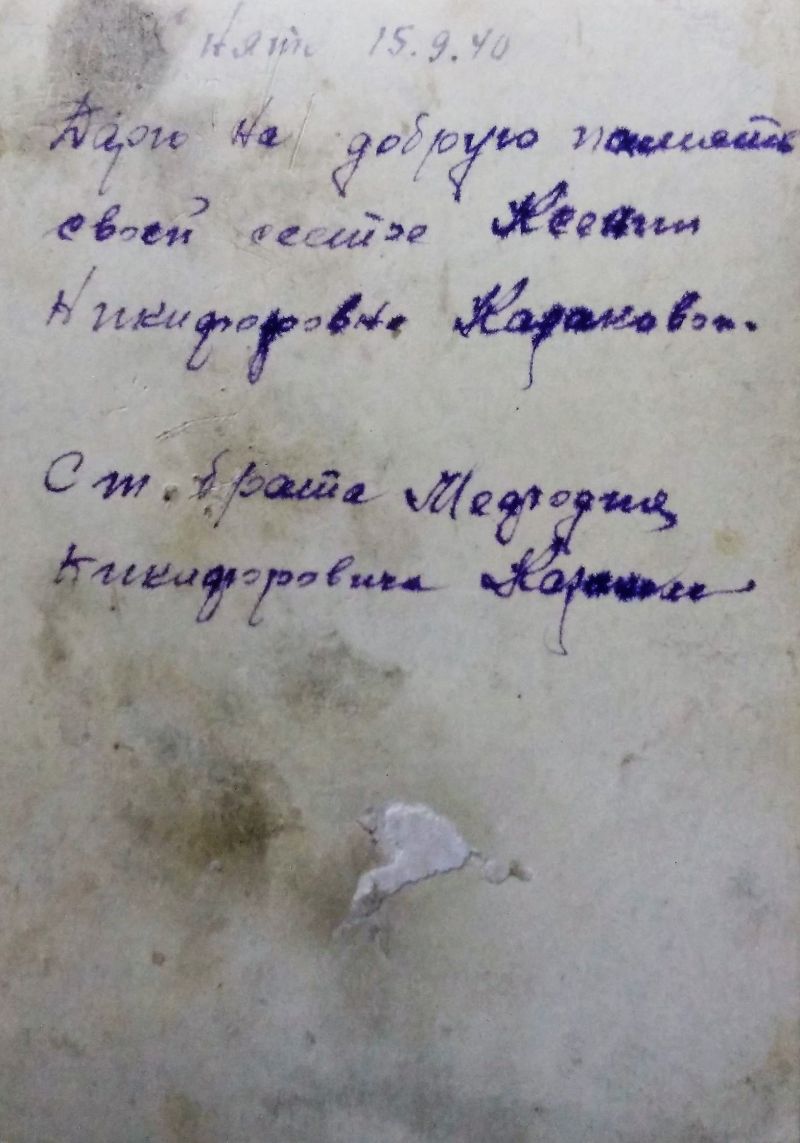 снято 15.9.40
Дарю на добрую память
своей сестре Ксении
Никифоровне Казаковой.
От брата Мефодия
Никифоровича